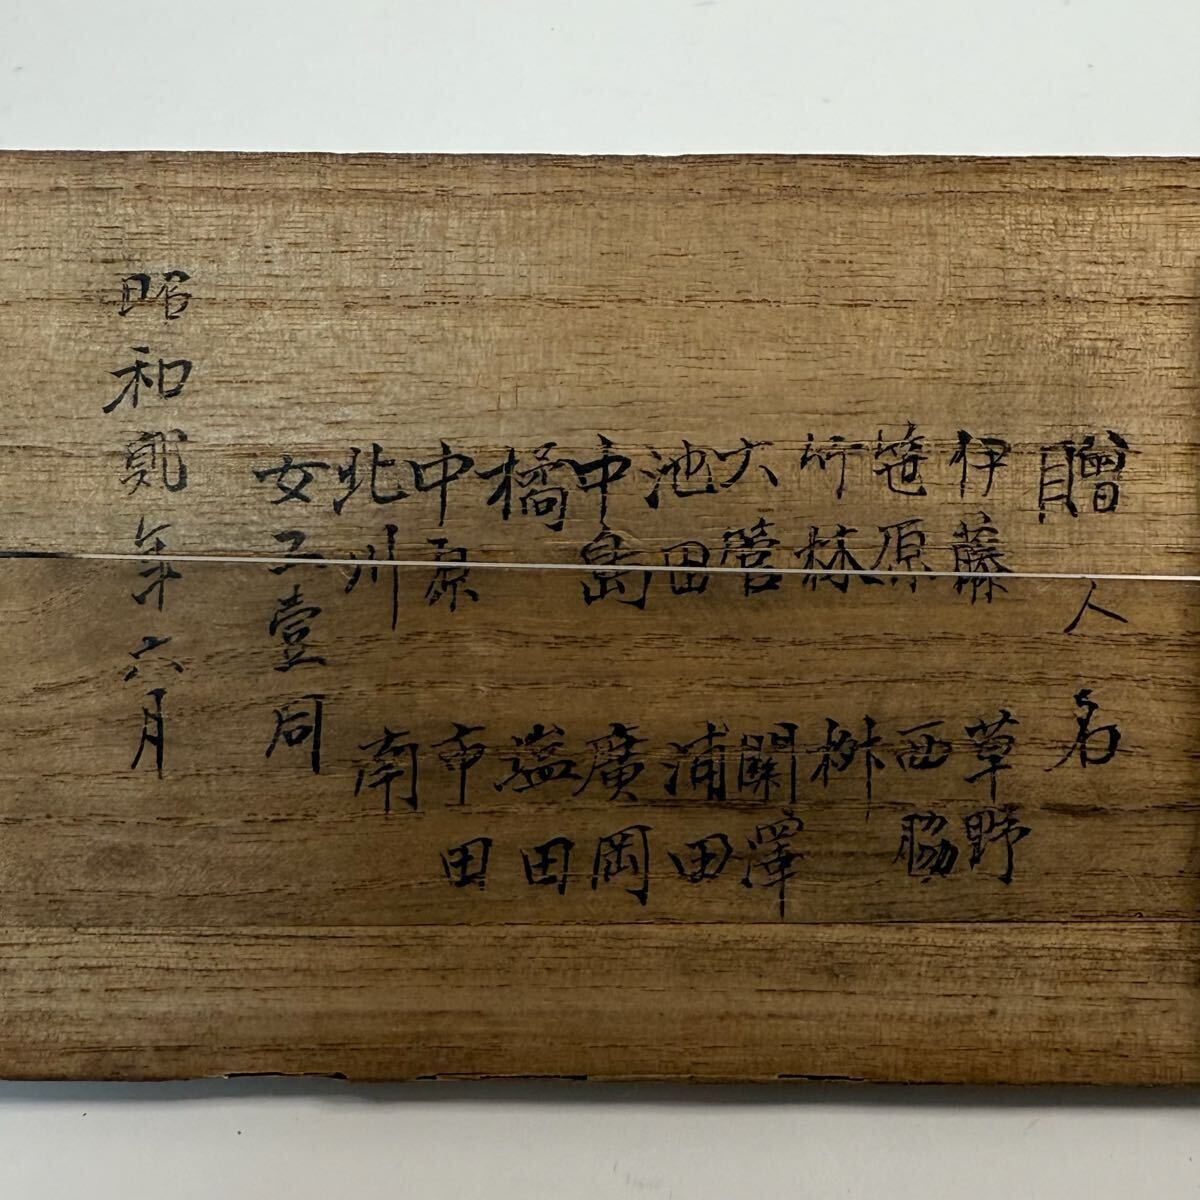 贈人名
伊藤 草野
笹原 西脇
竹林 桝
大菅 關澤
池田 浦田
中島 廣岡
橘 溢田
中原 市田
北川 南
女工壹同
昭和貮年六月